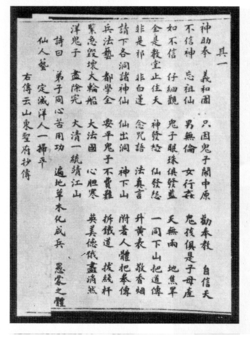 其一
神助拳 義和團 只因鬼子鬧中原 勸奉教 自信天
不信神 忘祖仙 男無倫 女行姦 鬼孩俱是子母產
如不信 仔細觀 鬼子眼珠俱發藍 天無雨 地焦旱
全是教堂止住天 神發怒 仙發怨 一同下山把道傳
非是邪 非白蓮 念咒語 法真言 升黃表 敬香煙
請下各洞諸神仙 仙出洞 神下山 附著人體把拳傳
兵法藝 都學全 要平鬼子不費難 拆鐵道 拔線杆
緊急毀壞大輪船 大法國 心膽寒 英美德俄盡消然
洋鬼子 盡除完 大清一統靖江山
詩曰 弟子同心苦用功 遍地草木化成兵 愚蒙之體
仙人藝 定滅洋人一掃平
右傳云山東聖府抄傳